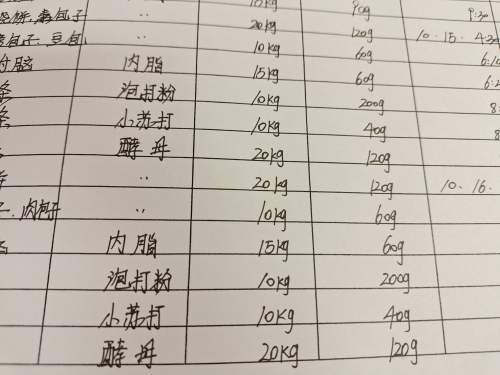 10kg 90g 9:30
包子 〃 20kg 120g 10.15. 4:30
包子、豆包 〃 10kg 60g
内脂 15kg 60g
条 泡打粉 10kg 200g
条 小苏打 10kg 40g
酵母 20kg 120g
〃 20kg 120g 10.16.
〃 10kg 60g
内脂 15kg 60g
泡打粉 10kg 200g
小苏打 10kg 40g
酵母 20kg 120g